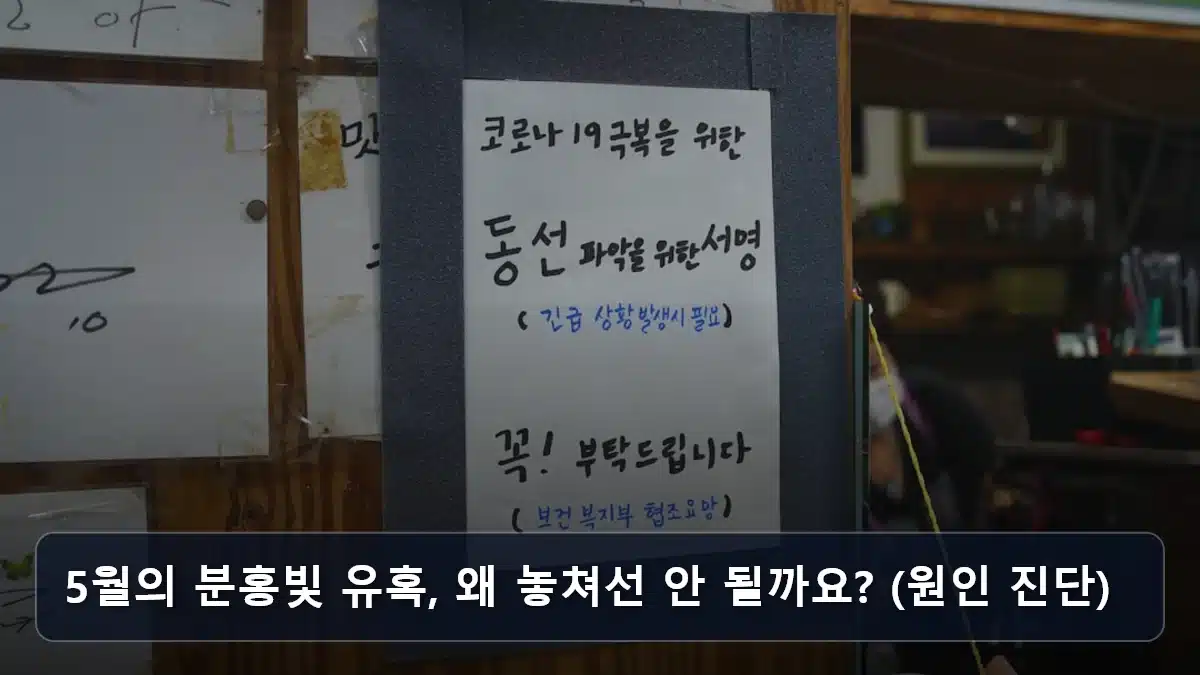 맛
10
코로나 19 극복을 위한
동선 파악을 위한 서명
( 긴급 상황발생시 필요)
꼭! 부탁드립니다
( 보건복지부 협조요망)
5월의 분홍빛 유혹, 왜 놓쳐선 안 될까요? (원인 진단)